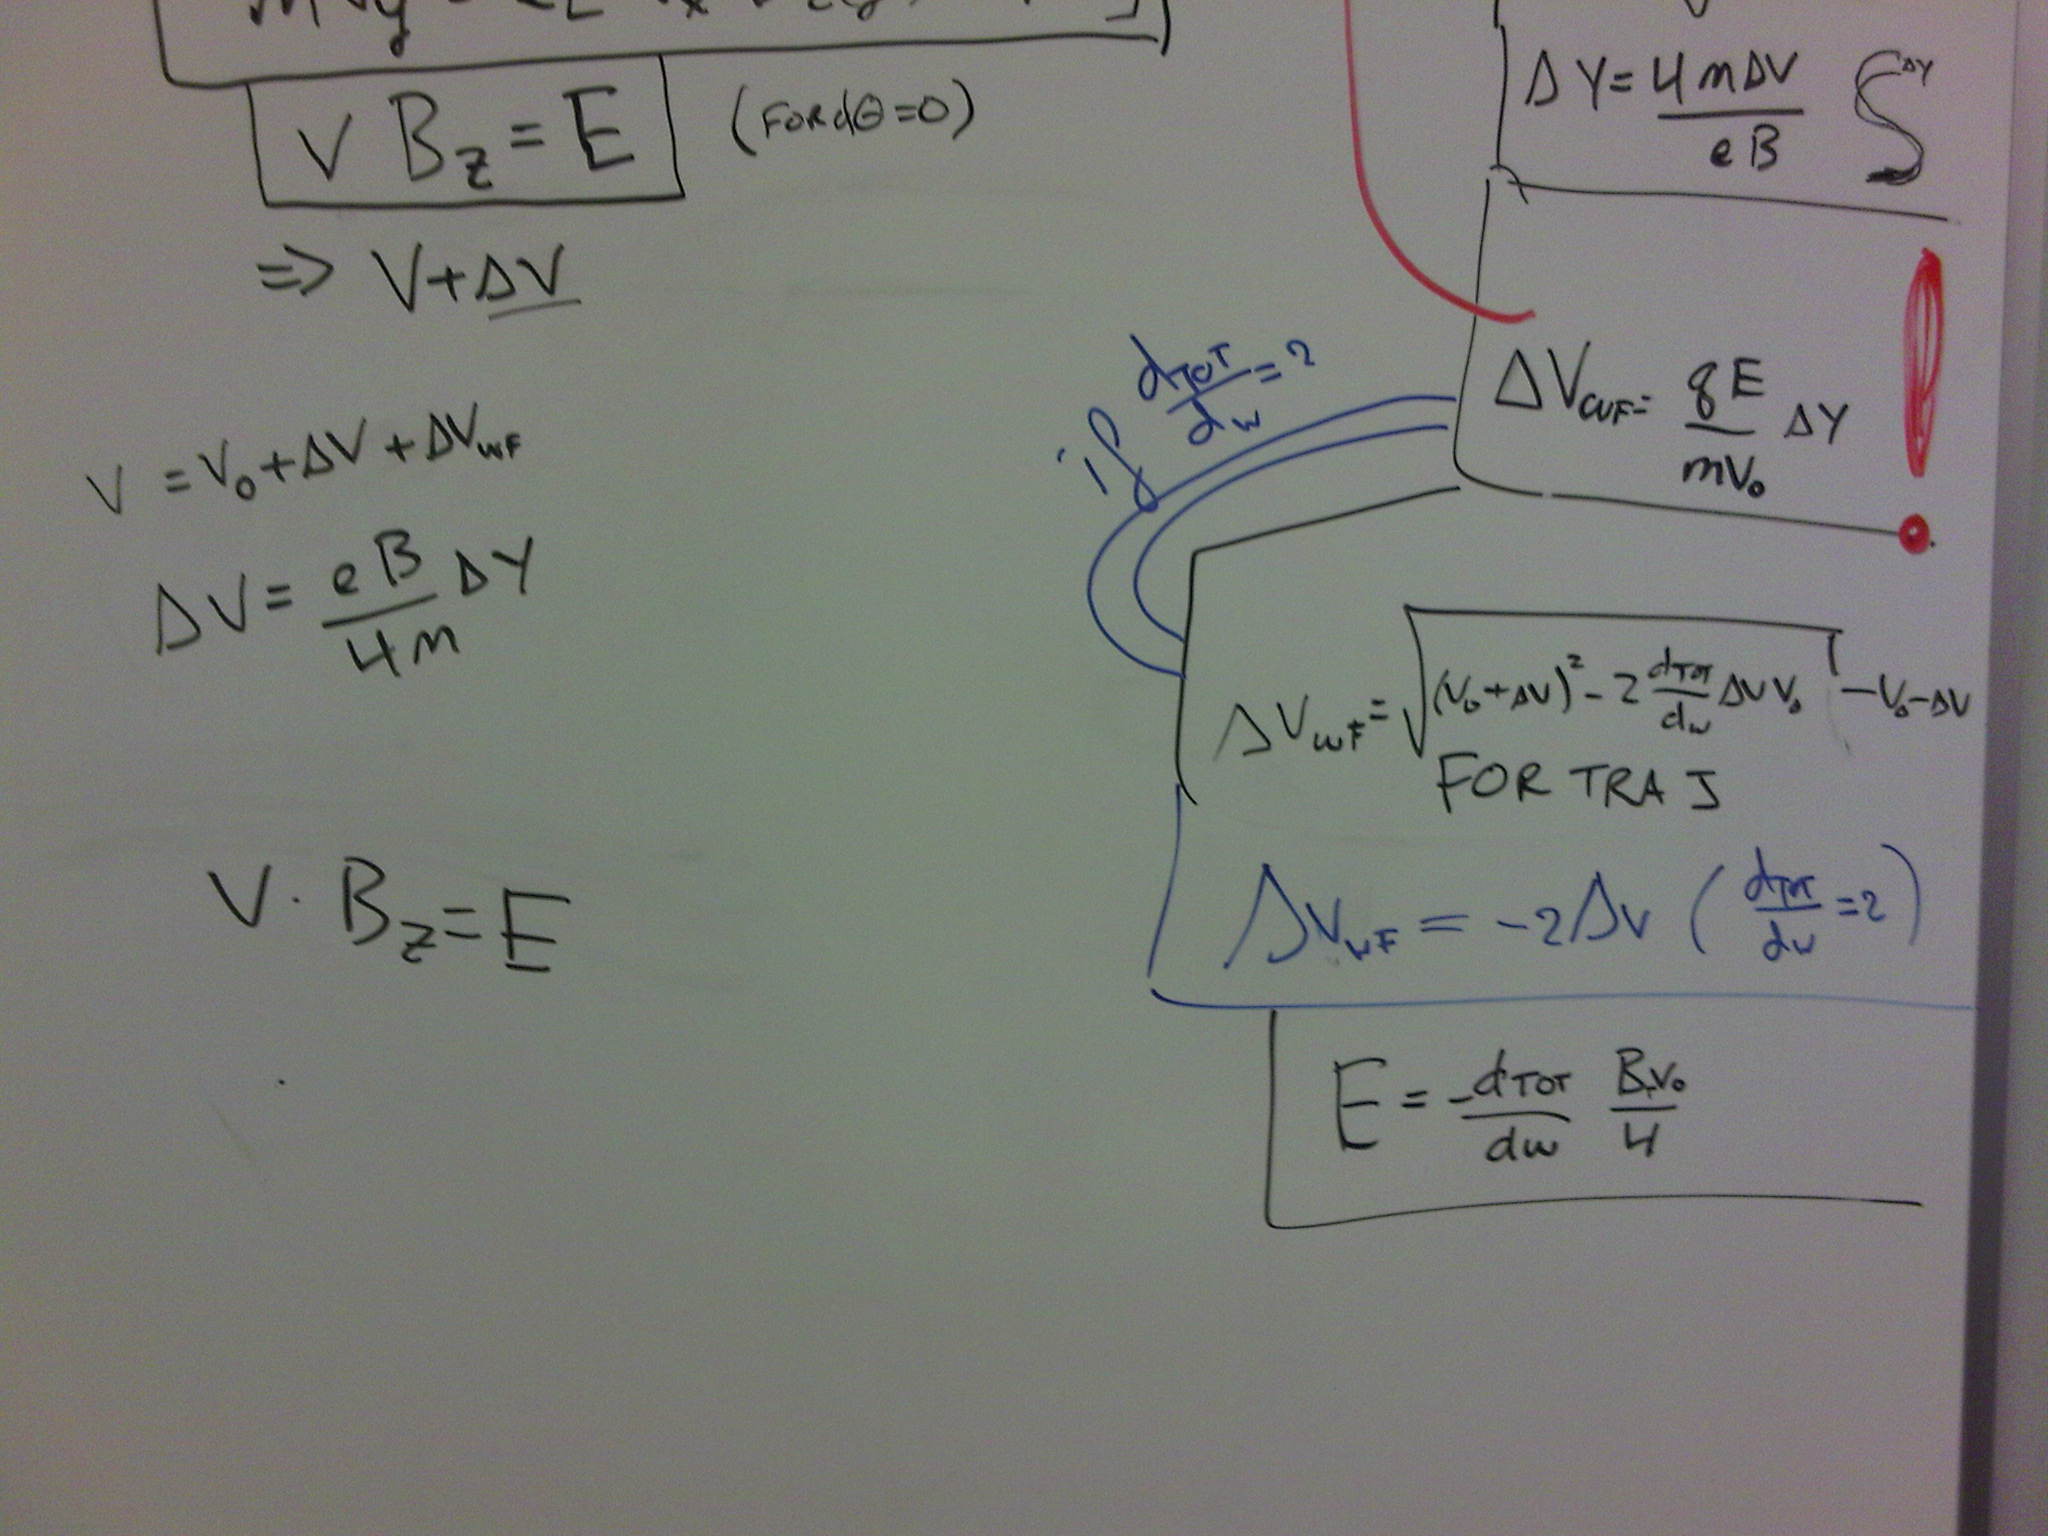 V B_z = E (FOR dθ=0)
=> V+ΔV
V = V₀+ΔV+ΔV_WF
ΔV = eB/4m ΔY
V · B_z = E
ΔY = 4mΔV/eB ΔY
ΔV_WF = qE/mV₀ ΔY
if d_TOT/d_w = 2
ΔV_WF = √((V₀+ΔV)² - 2 d_TOT/d_w ΔV V₀) - V₀ - ΔV
FOR TRAJ
ΔV_WF = -2ΔV (d_TOT/d_w = 2)
E = -d_TOT/d_w B·V₀/4